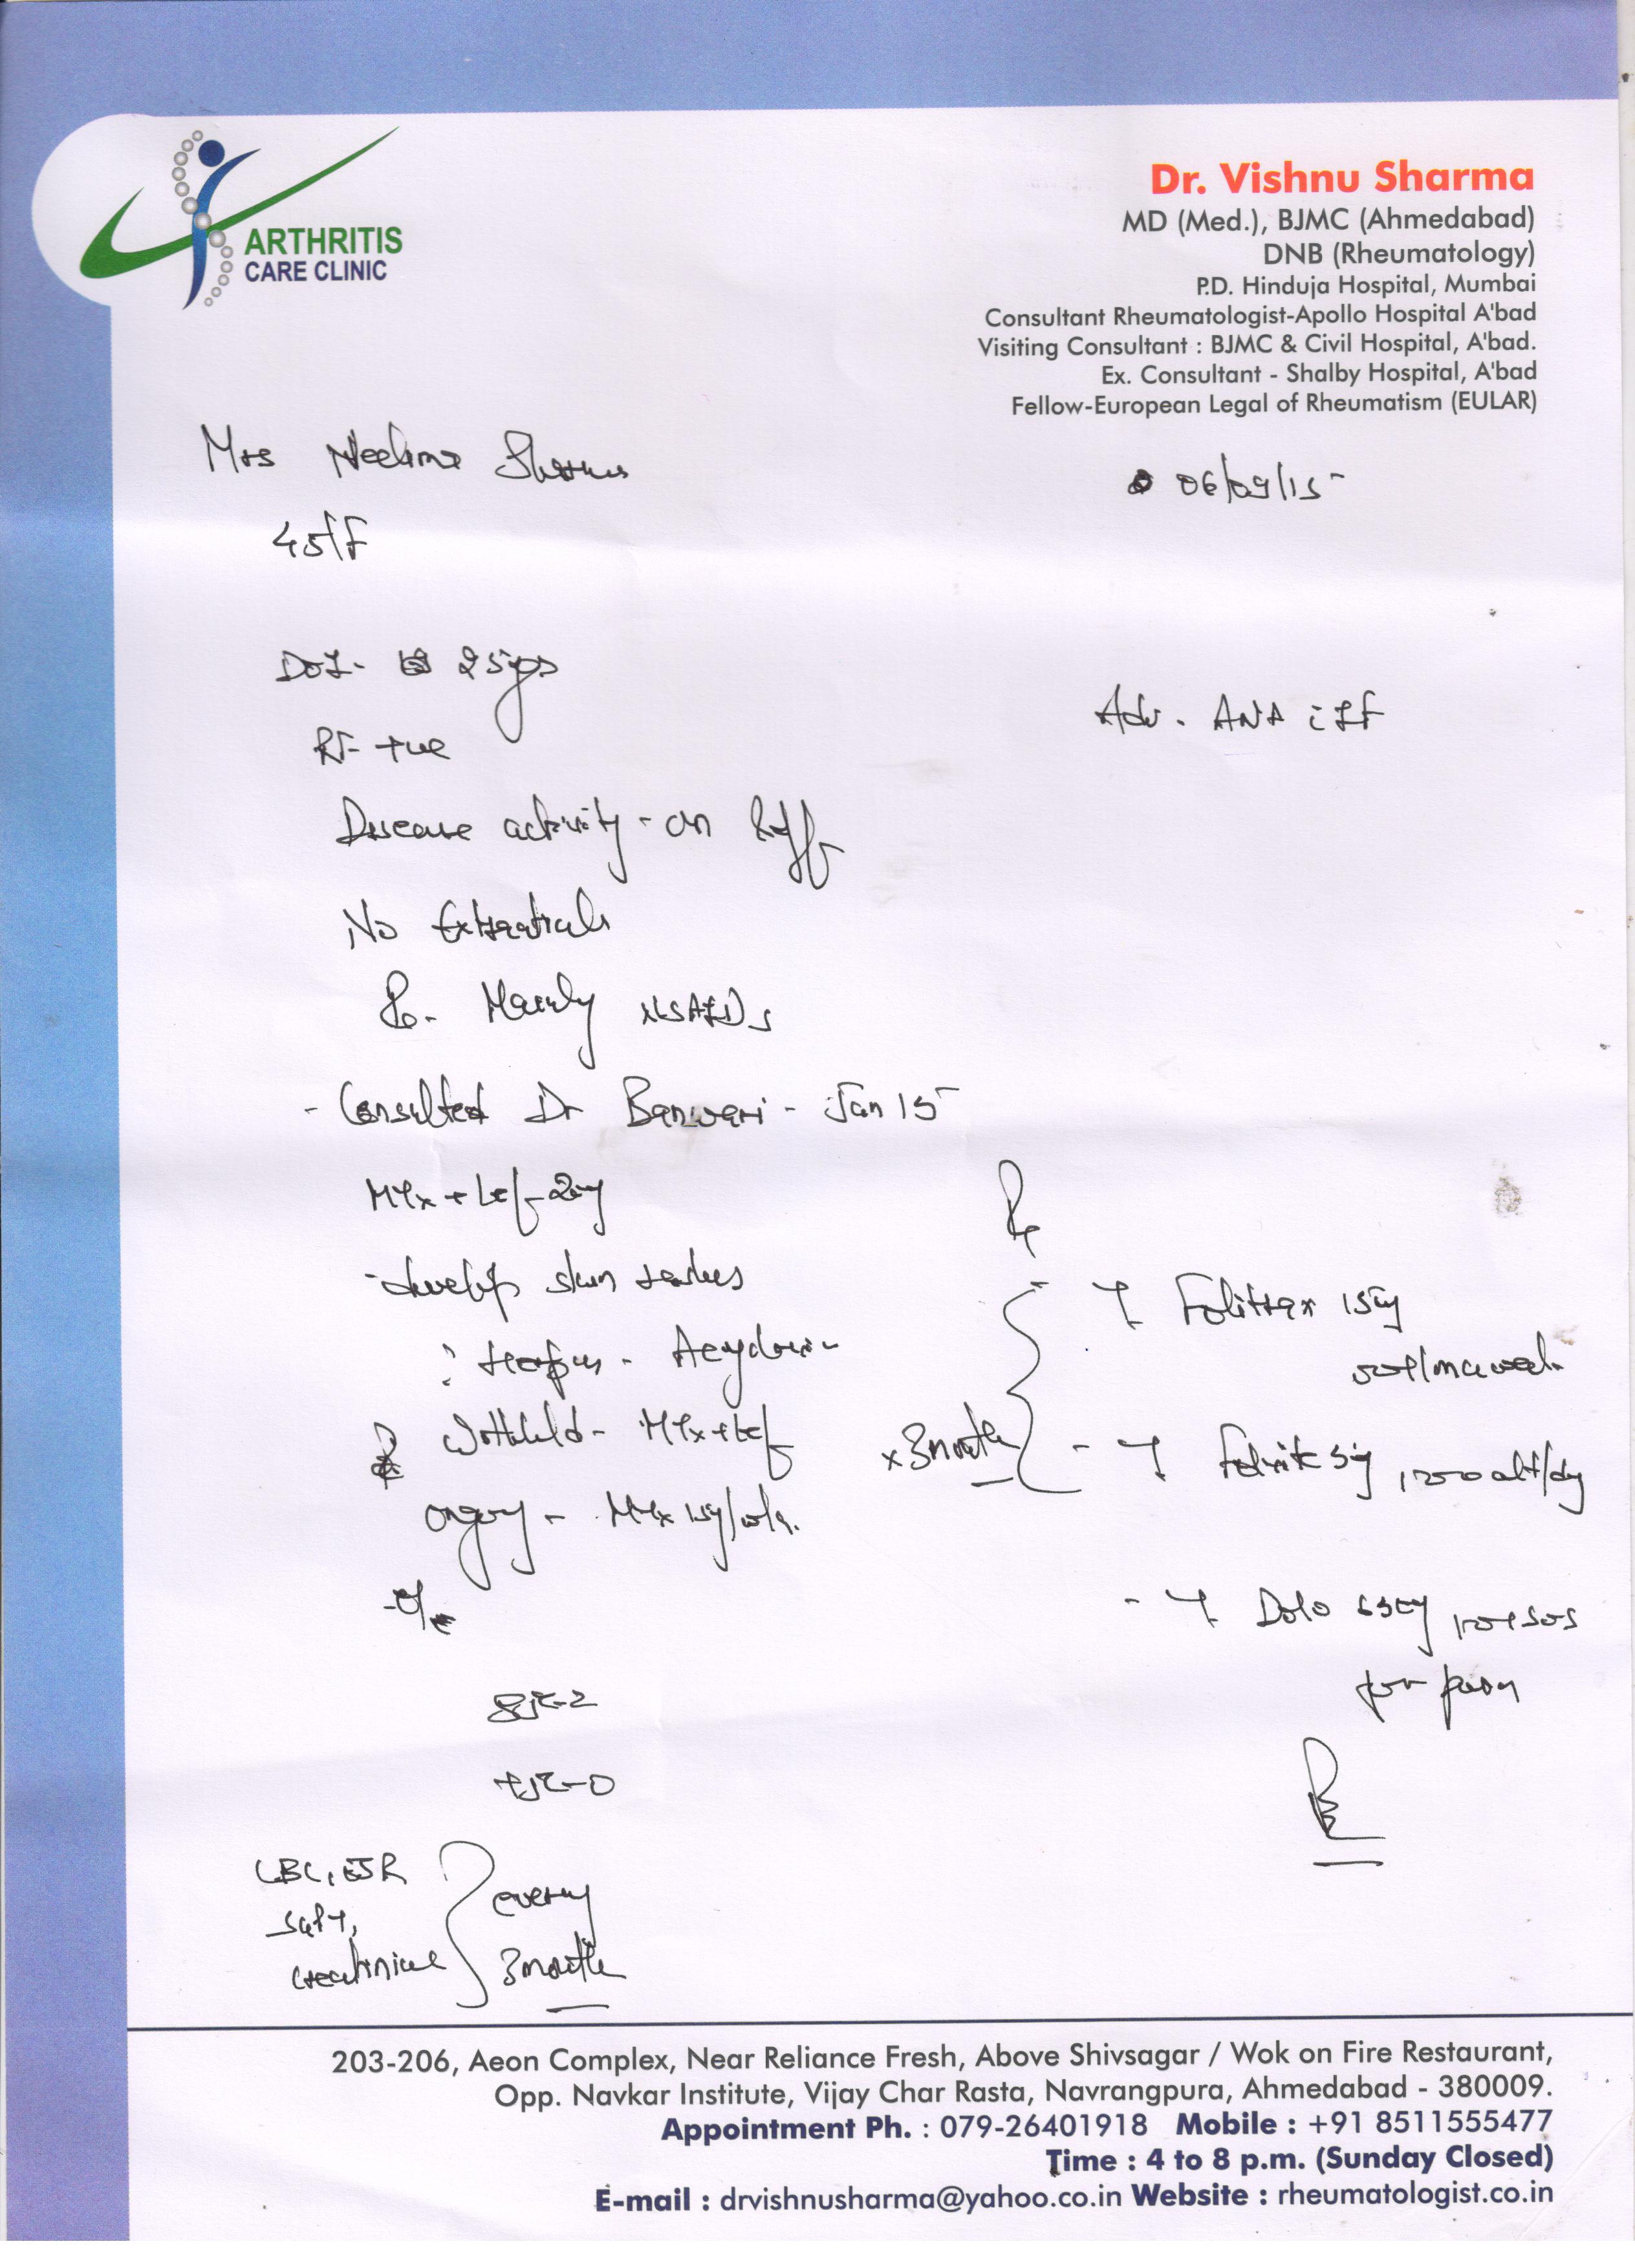 ARTHRITIS
CARE CLINIC
Dr. Vishnu Sharma
MD (Med.), BJMC (Ahmedabad)
DNB (Rheumatology)
P.D. Hinduja Hospital, Mumbai
Consultant Rheumatologist-Apollo Hospital A'bad
Visiting Consultant : BJMC & Civil Hospital, A'bad.
Ex. Consultant - Shalby Hospital, A'bad
Fellow-European Legal of Rheumatism (EULAR)
Mrs
06/09/15
45/F
DOI- 25yrs
Adv. ANA IF
RF +ve
Disease activity - on & off
No
Rx. Mainly NSAIDs
- Consulted Dr Banwari - Jan 15
MTx + Lef
- develop skin
Withheld - MTx + Lef
ongoing - MTx 15mg/wk.
- O/E
SJC-2
TJC-0
CBC, ESR
SGPT,
creatinine
every
3 month
Rx
- T Folitrax 15mg
x 3 month
- T 5mg
- T Dolo 650mg 1 tab SOS
for pain
203-206, Aeon Complex, Near Reliance Fresh, Above Shivsagar / Wok on Fire Restaurant,
Opp. Navkar Institute, Vijay Char Rasta, Navrangpura, Ahmedabad - 380009.
Appointment Ph. : 079-26401918 Mobile : +91 8511555477
Time : 4 to 8 p.m. (Sunday Closed)
E-mail : drvishnusharma@yahoo.co.in Website : rheumatologist.co.in